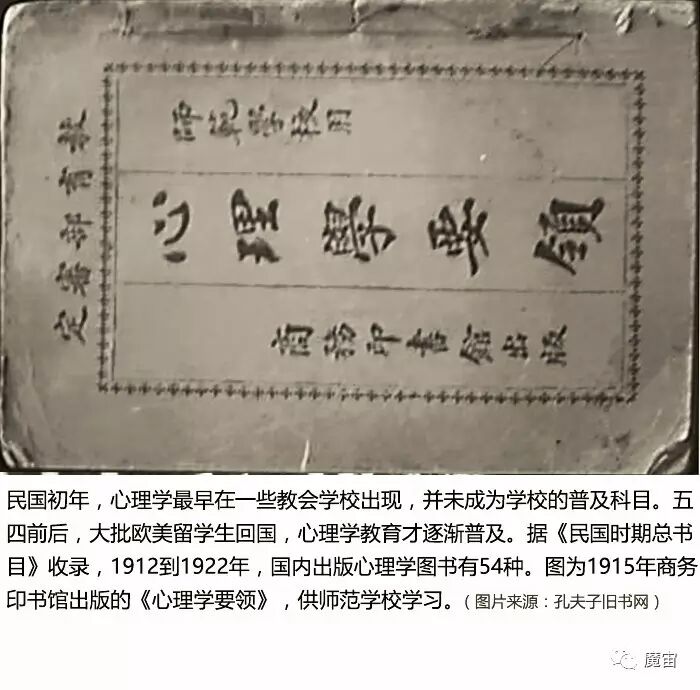 教育部審定
師範學校用
心理學要領
商務印書館出版
民国初年，心理学最早在一些教会学校出现，并未成为学校的普及科目。五
四前后，大批欧美留学生回国，心理学教育才逐渐普及。据《民国时期总书
目》收录，1912到1922年，国内出版心理学图书有54种。图为1915年商务
印书馆出版的《心理学要领》，供师范学校学习。（图片来源：孔夫子旧书网）
魔宙